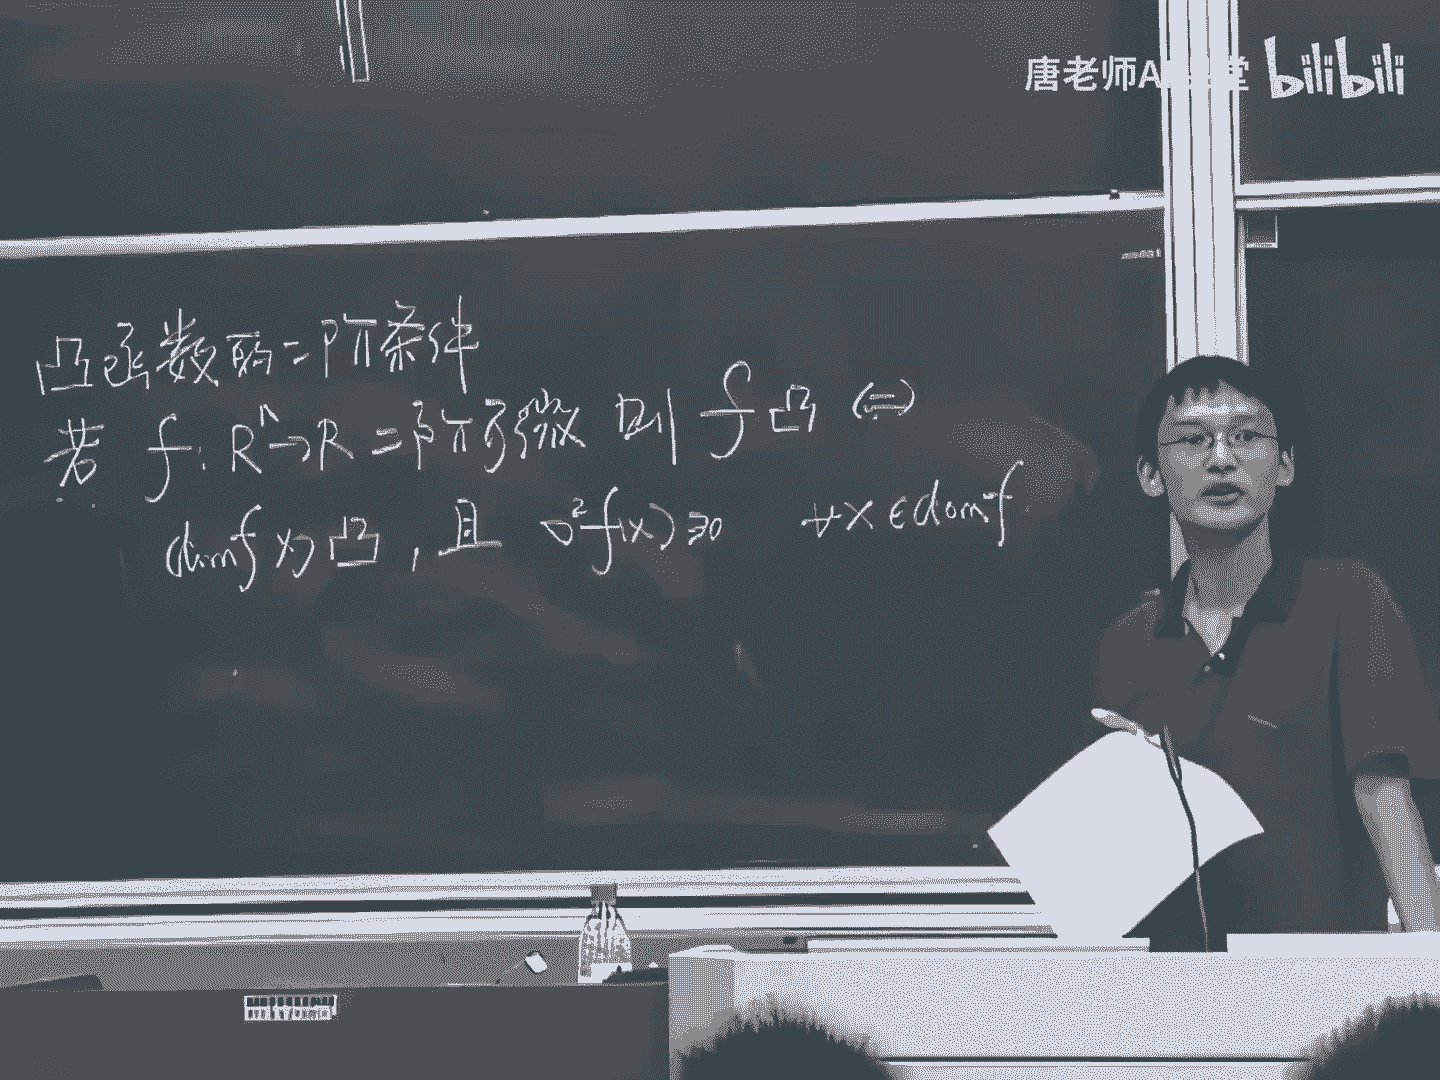 唐老师A 堂 bilibili
凸函数的二阶条件
若 f: Rⁿ→R 二阶可微 则 f 凸 ⇔
domf 为凸, 且 ∇²f(x)≽0 ∀x∈domf